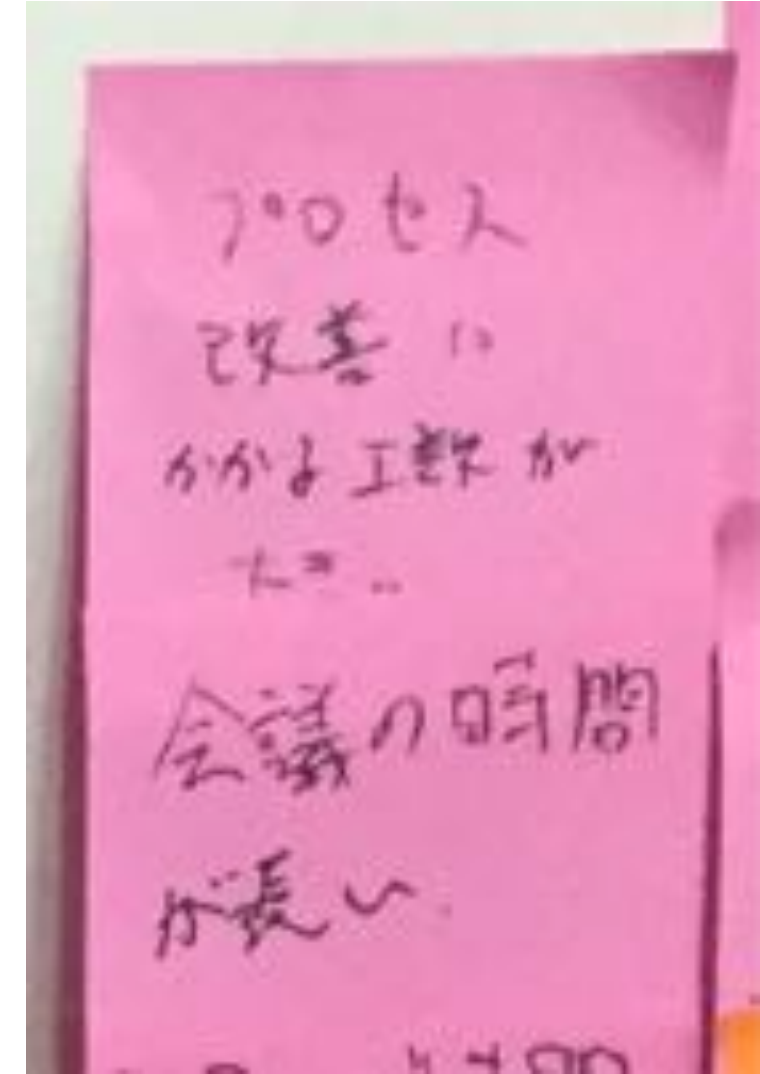 プロセス
改善に
かかる工数が
大きい
会議の時間
が長い